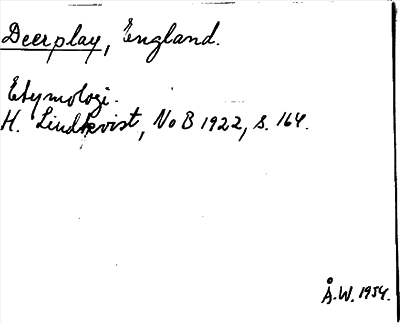 Deerplay, England.
Etymologi.
H. Lindkvist, NoB 1922, s. 164.
Å.W. 1954.